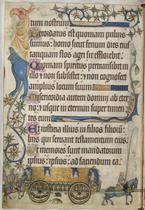 tum nostrum
Recordatus est quoniam puluis
sumus: homo sicut fenum dies eius
tanquam flos agri sic efflorebit
Quoniam spiritus pertransibit in
illo et non subsistet: et non cognoscet
amplius locum suum
Misericordia autem domini ab eter
no: et usque in eternum super timen
tes eum
Et iusticia illius in filios filiorum:
hiis qui seruant testamentum eius
Et memores sunt mandatorum
ipsius: ad faciendum ea